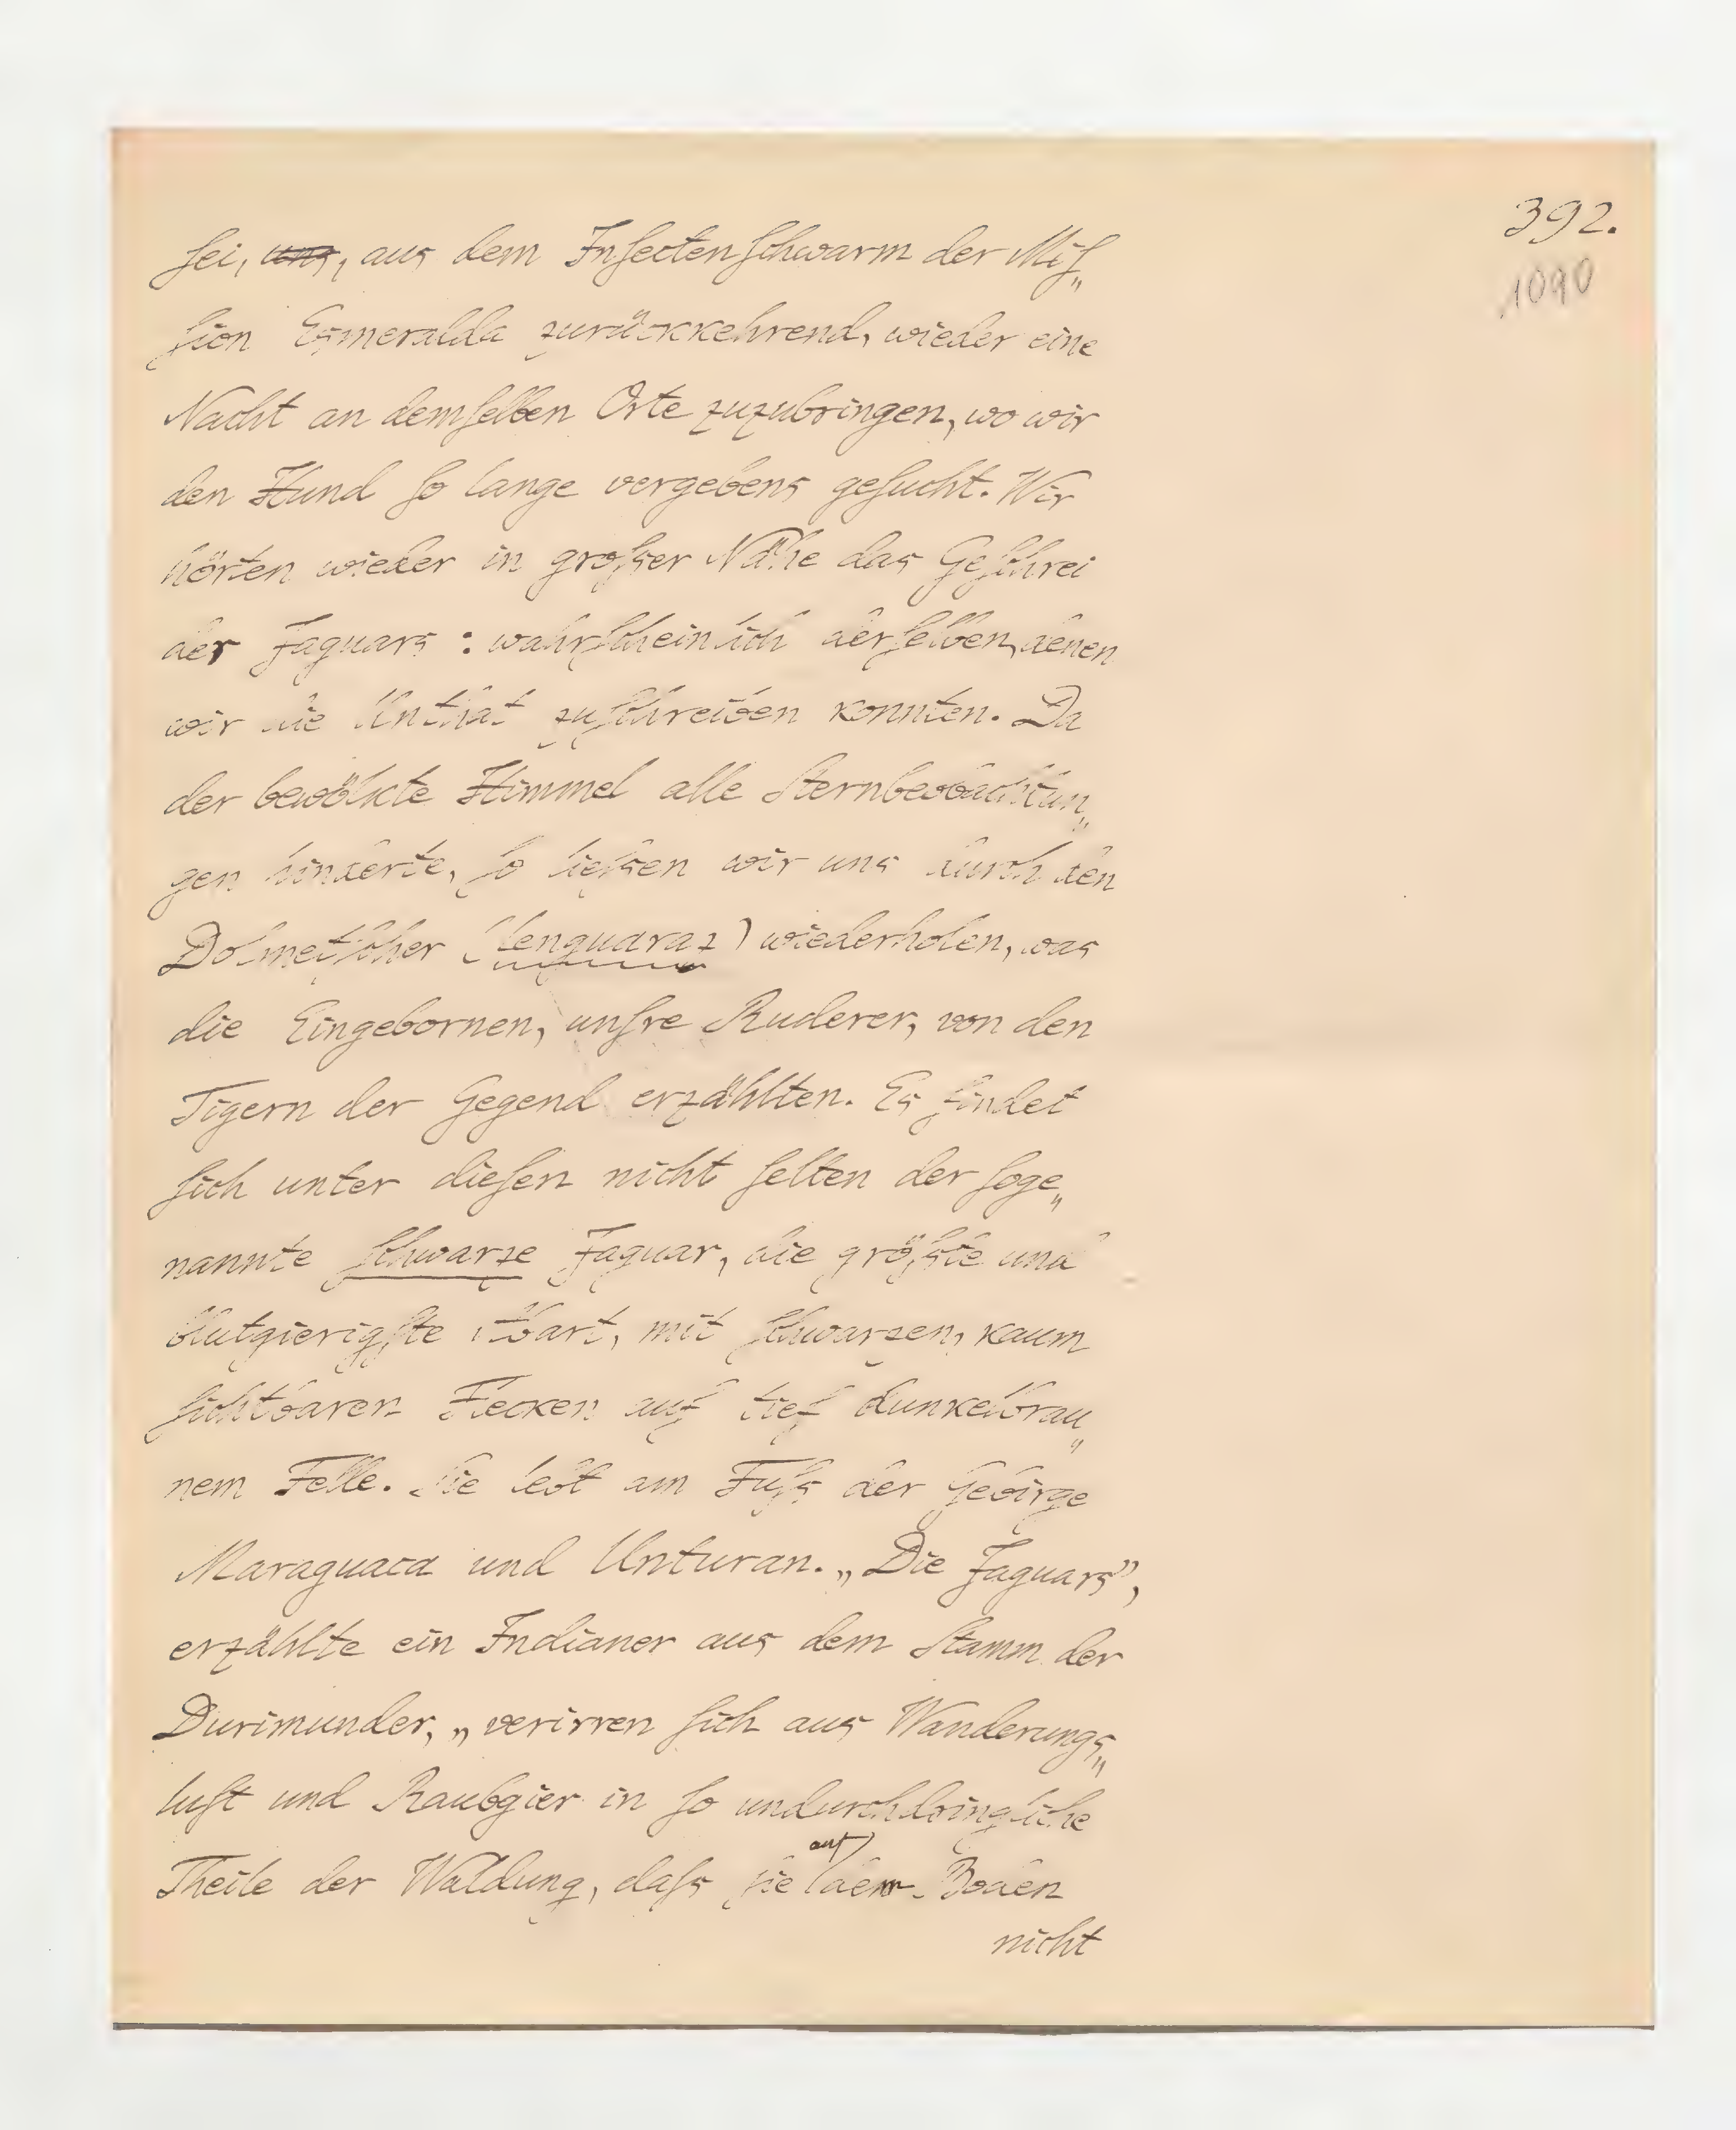 392.
1090
ſei, uns, aus dem Inſectenſchwarm der Miſ„
ſion Esmeralda zurückkehrend, wieder eine
Nacht an demſelben Orte zuzubringen, wo wir
den Hund ſo lange vergebens geſucht. Wir
hörten wieder in groſser Nähe das Geſchrei
der Jaguars : wahrſcheinlich derſelben, denen
wir die Unthat zuſchreiben konnten. Da
der bewölkte Himmel alle Sternbeobachtun„
gen hinderte, ſo lieſsen wir uns durch den
Dolmetſcher (lenguaraz) wiederholen, was
die Eingebornen, unſre Ruderer, von den
Tigern der Gegend erzählten. Es findet
ſich unter dieſen nicht ſelten der ſoge„
nannte ſchwarze Jaguar, die gröſste und
blutgierigſte Abart, mit ſchwarzen, kaum
ſichtbaren Flecken auf tief dunkelbrau„
nem Felle. Sie lebt am Fuſs der Gebirge
Maraguaca und Unturan. „Die Jaguars”,
erzählte ein Indianer aus dem Stamm der
Durimunder, „verirren ſich aus Wanderungs„
luſt und Raubgier in ſo undurchdringliche
Theile der Waldung, daſs ſie auf dem Boden
nicht